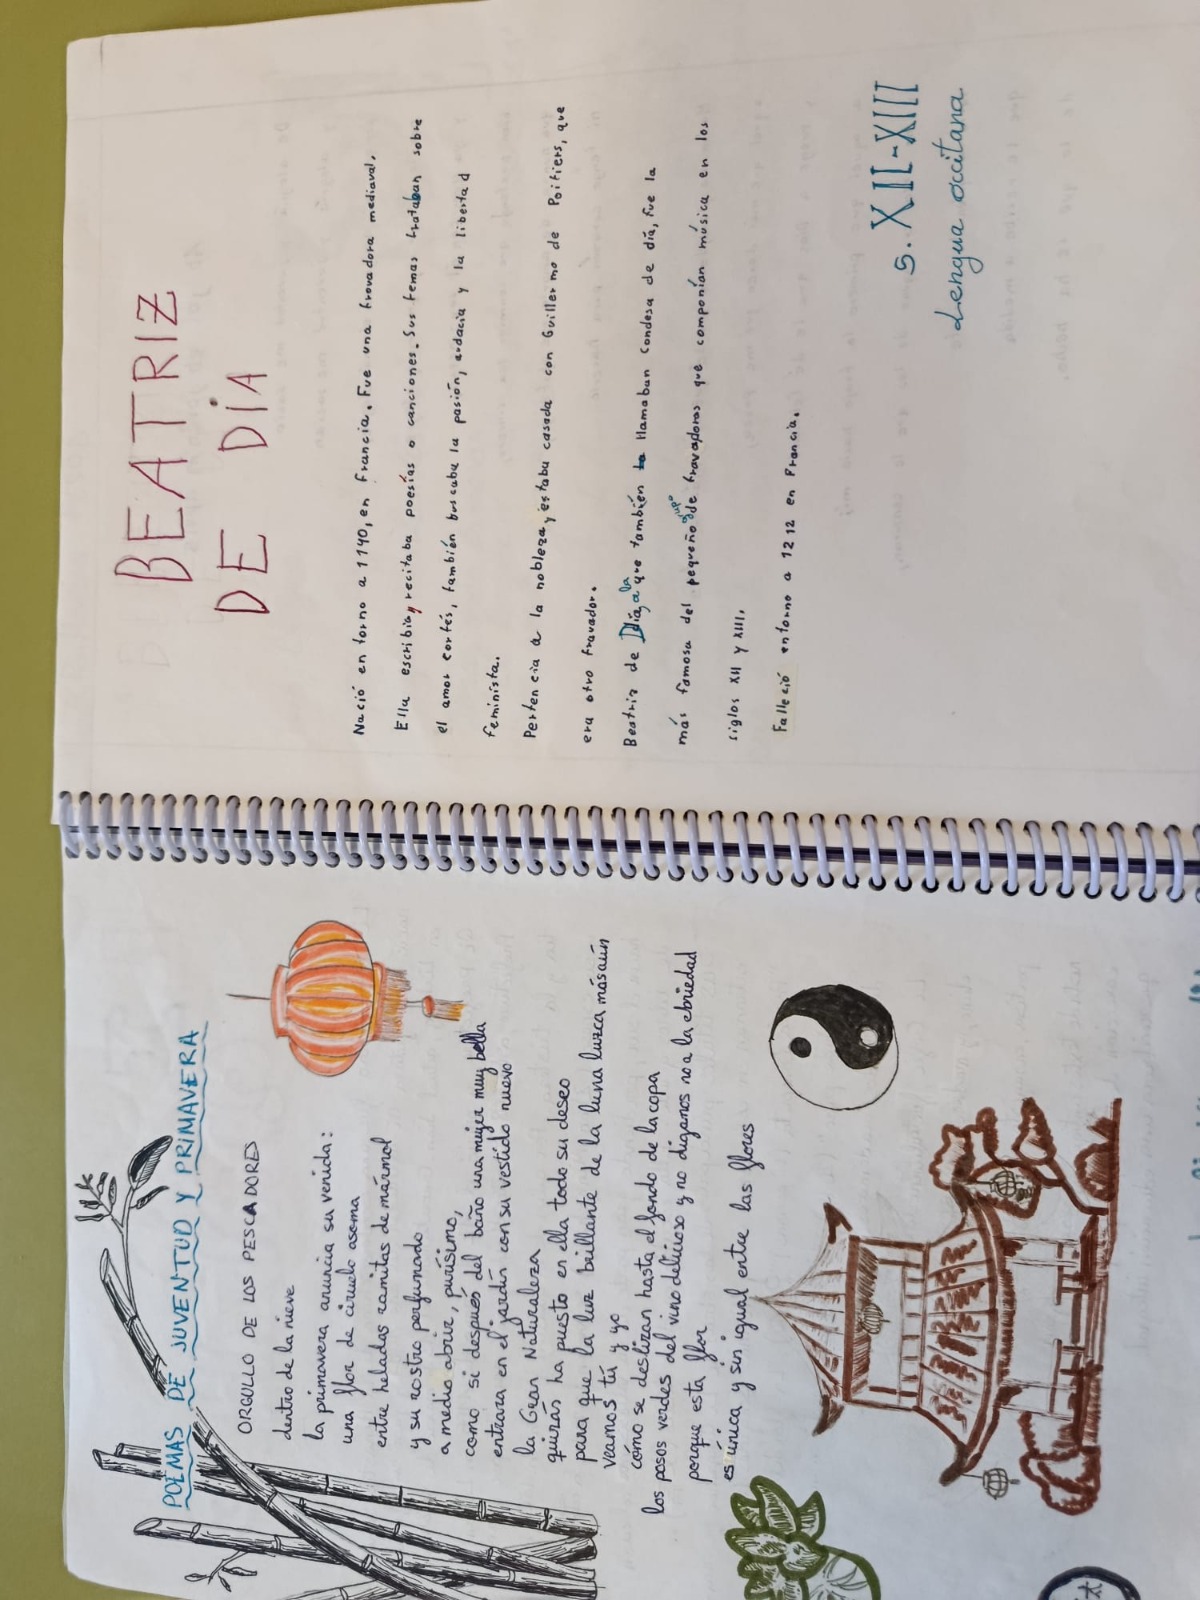 POEMAS DE JUVENTUD Y PRIMAVERA
ORGULLO DE LOS PESCADORES
dentro de la nieve
la primavera anuncia su venida:
una flor de ciruelo asoma
entre heladas ramitas de mármol
y su rostro perfumado
a medio abrir, purísimo,
como si después del baño una mujer muy bella
entrara en el jardín con su vestido nuevo
la Gran Naturaleza
quizás ha puesto en ella todo su deseo
para que la luz brillante de la luna luzca más aún
veamos tú y yo
cómo se deslizan hasta el fondo de la copa
los posos verdes del vino delicioso y no digamos no a la ebriedad
porque esta flor
es única y sin igual entre las flores
BEATRIZ
DE DÍA
Nació en torno a 1140, en Francia. Fue una trovadora medieval.
Ella escribía y recitaba poesías o canciones. Sus temas trataban sobre
el amor cortés, también buscaba la pasión, audacia y la libertad
feminista.
Pertencia a la nobleza, y estaba casada con Guillermo de Poitiers, que
era otro travador.
Beatriz de Día, a la que también llamaban Condesa de día, fue la
más famosa del pequeño grupo de travadoras que componían música en los
siglos XII y XIII.
Falleció entorno a 1212 en Francia.
S. XII-XIII
Lengua occitana